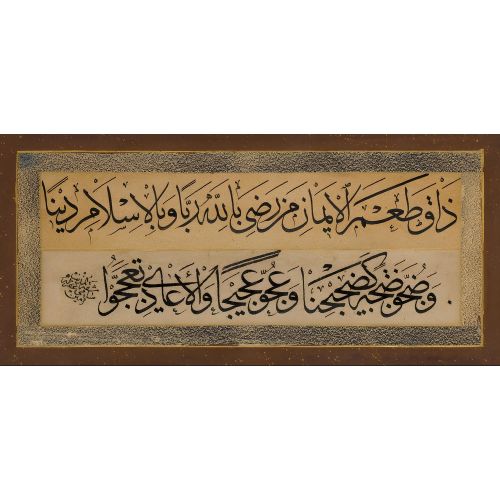 ذَاقَ طَعْمَ الْاِيمَانِ مَنْ رَضِيَ بِاللّٰهِ رَبًّا وَبِالْاِسْلَامِ دِينًا
وضجوا ضجة كضجيجنا وعجوا عجيجا والأعادي